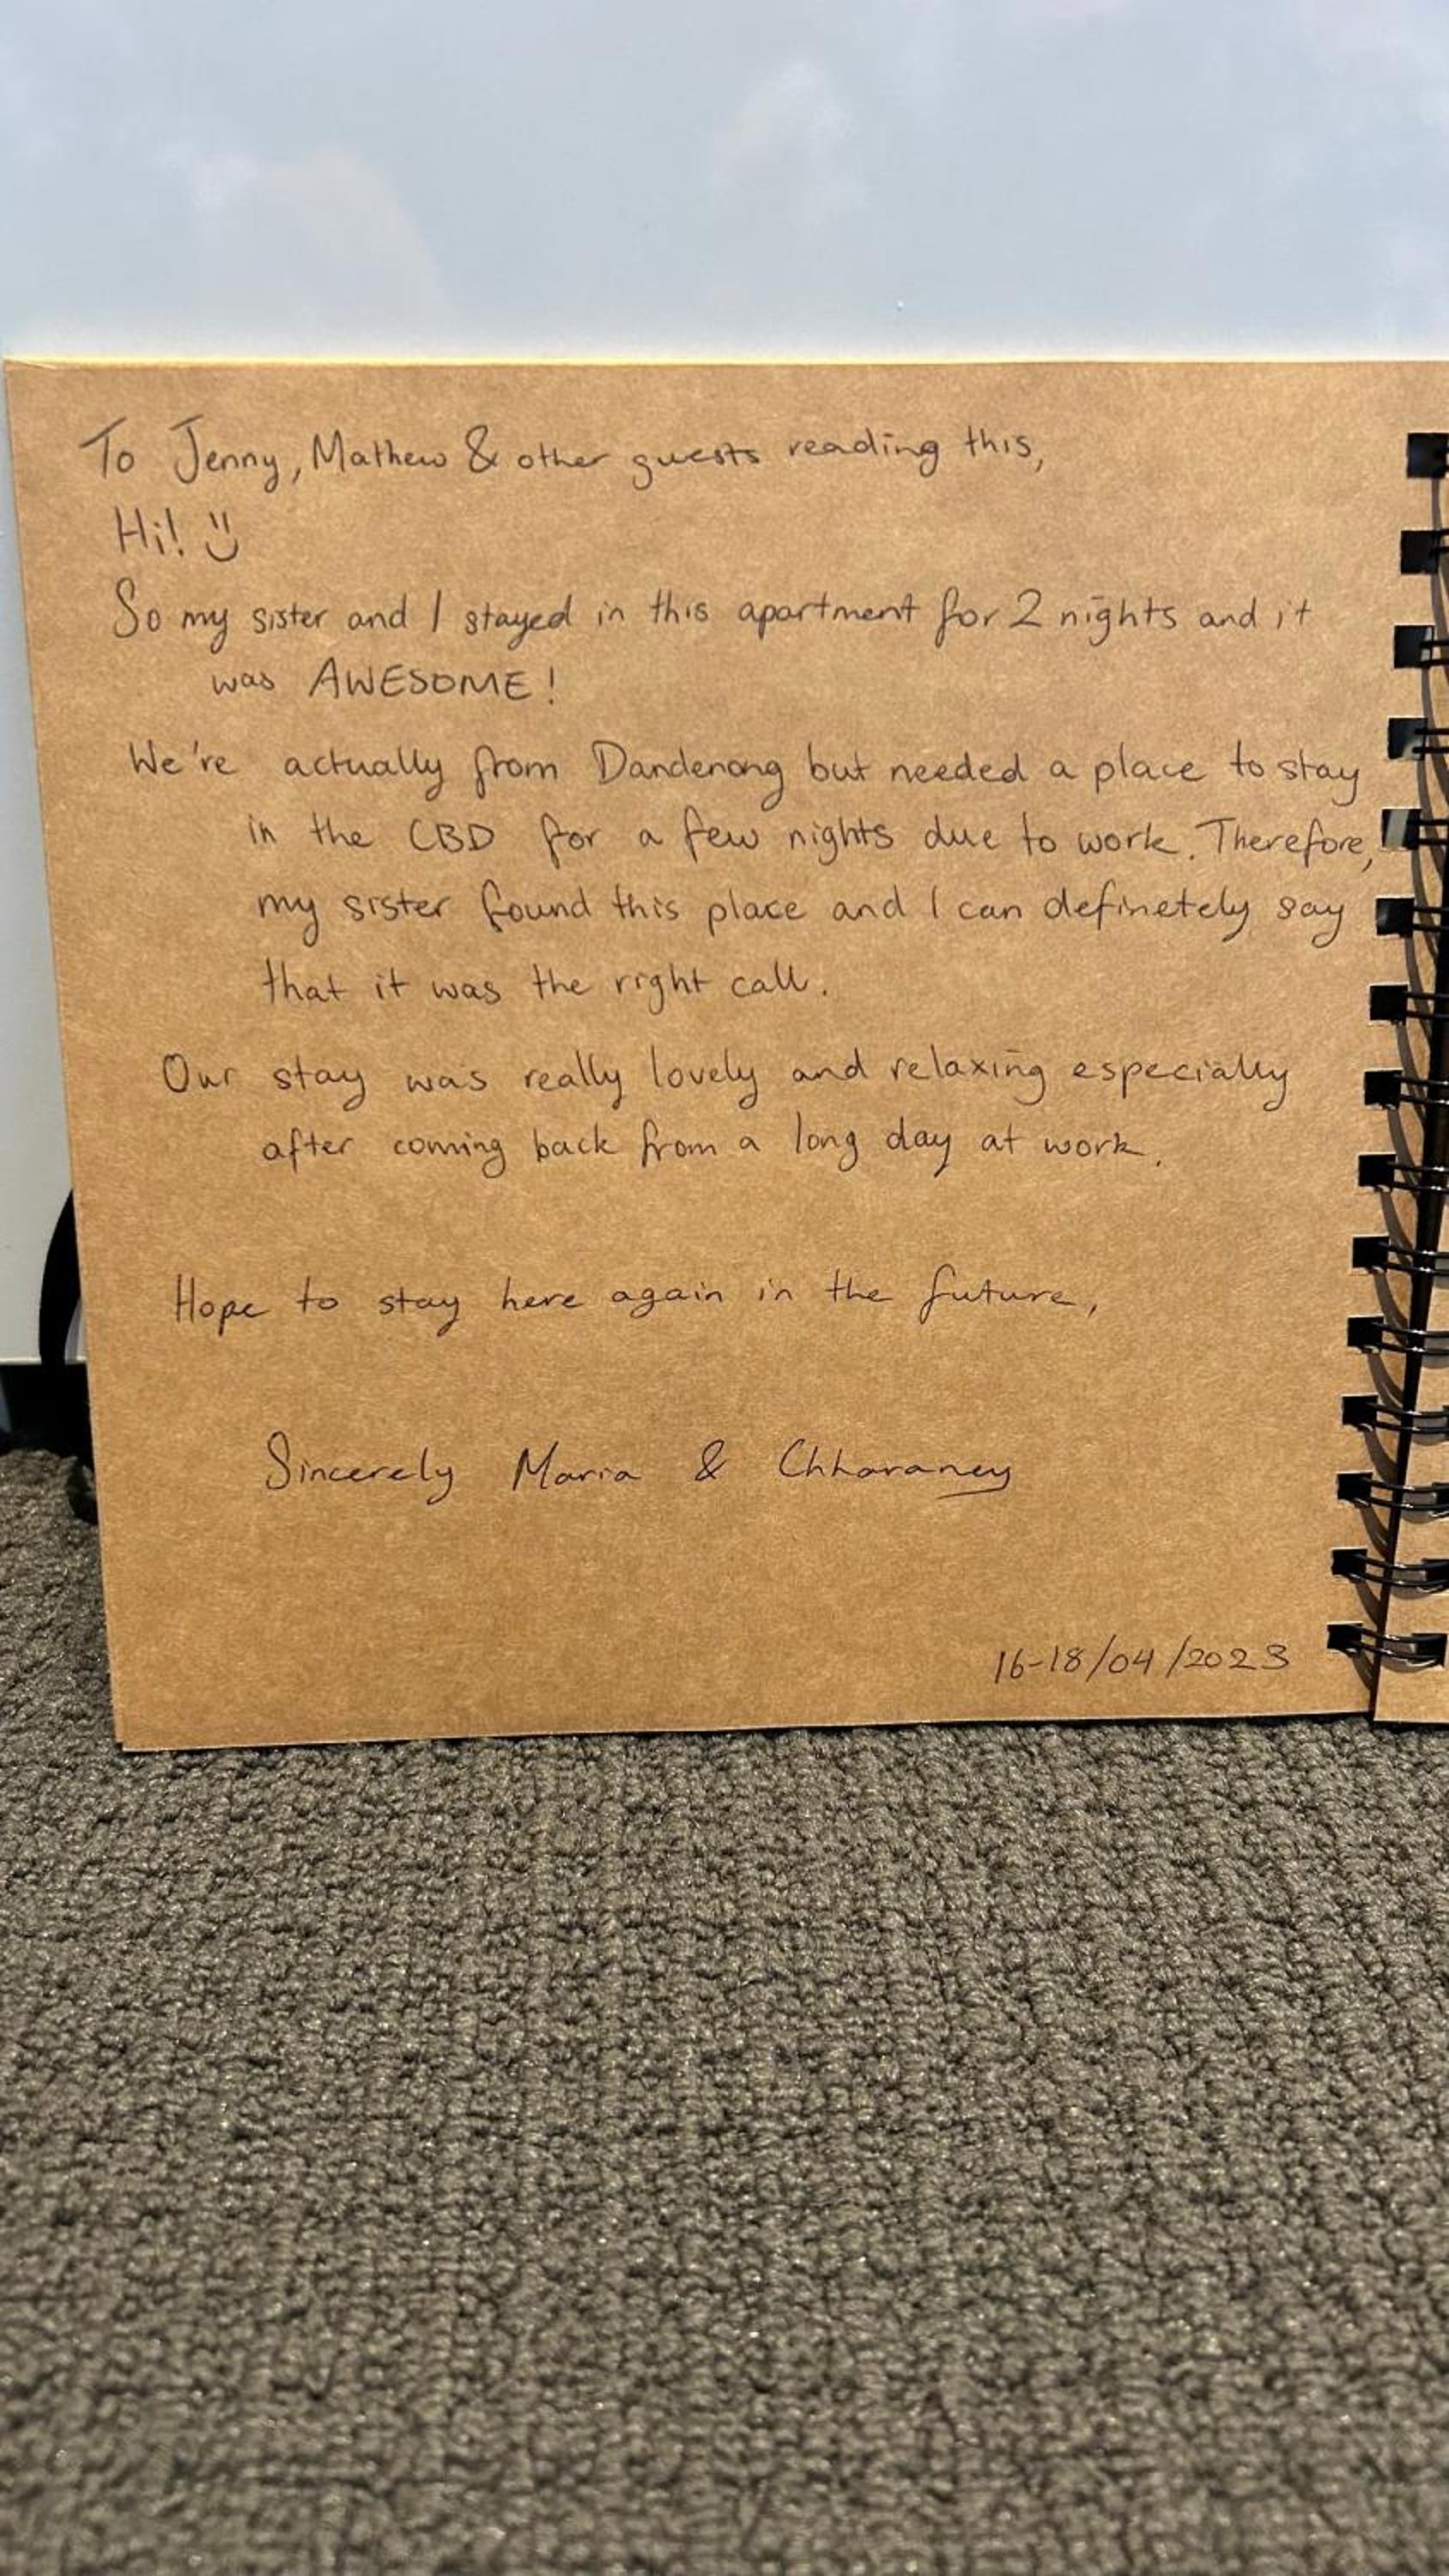 To Jenny, Mathew & other guests reading this,
Hi! :)
So my sister and I stayed in this apartment for 2 nights and it
was AWESOME!
We're actually from Dandenong but needed a place to stay
in the CBD for a few nights due to work. Therefore,
my sister found this place and I can definetely say
that it was the right call.
Our stay was really lovely and relaxing especially
after coming back from a long day at work.
Hope to stay here again in the future,
Sincerely Maria & Chharaney
16-18/04/2023